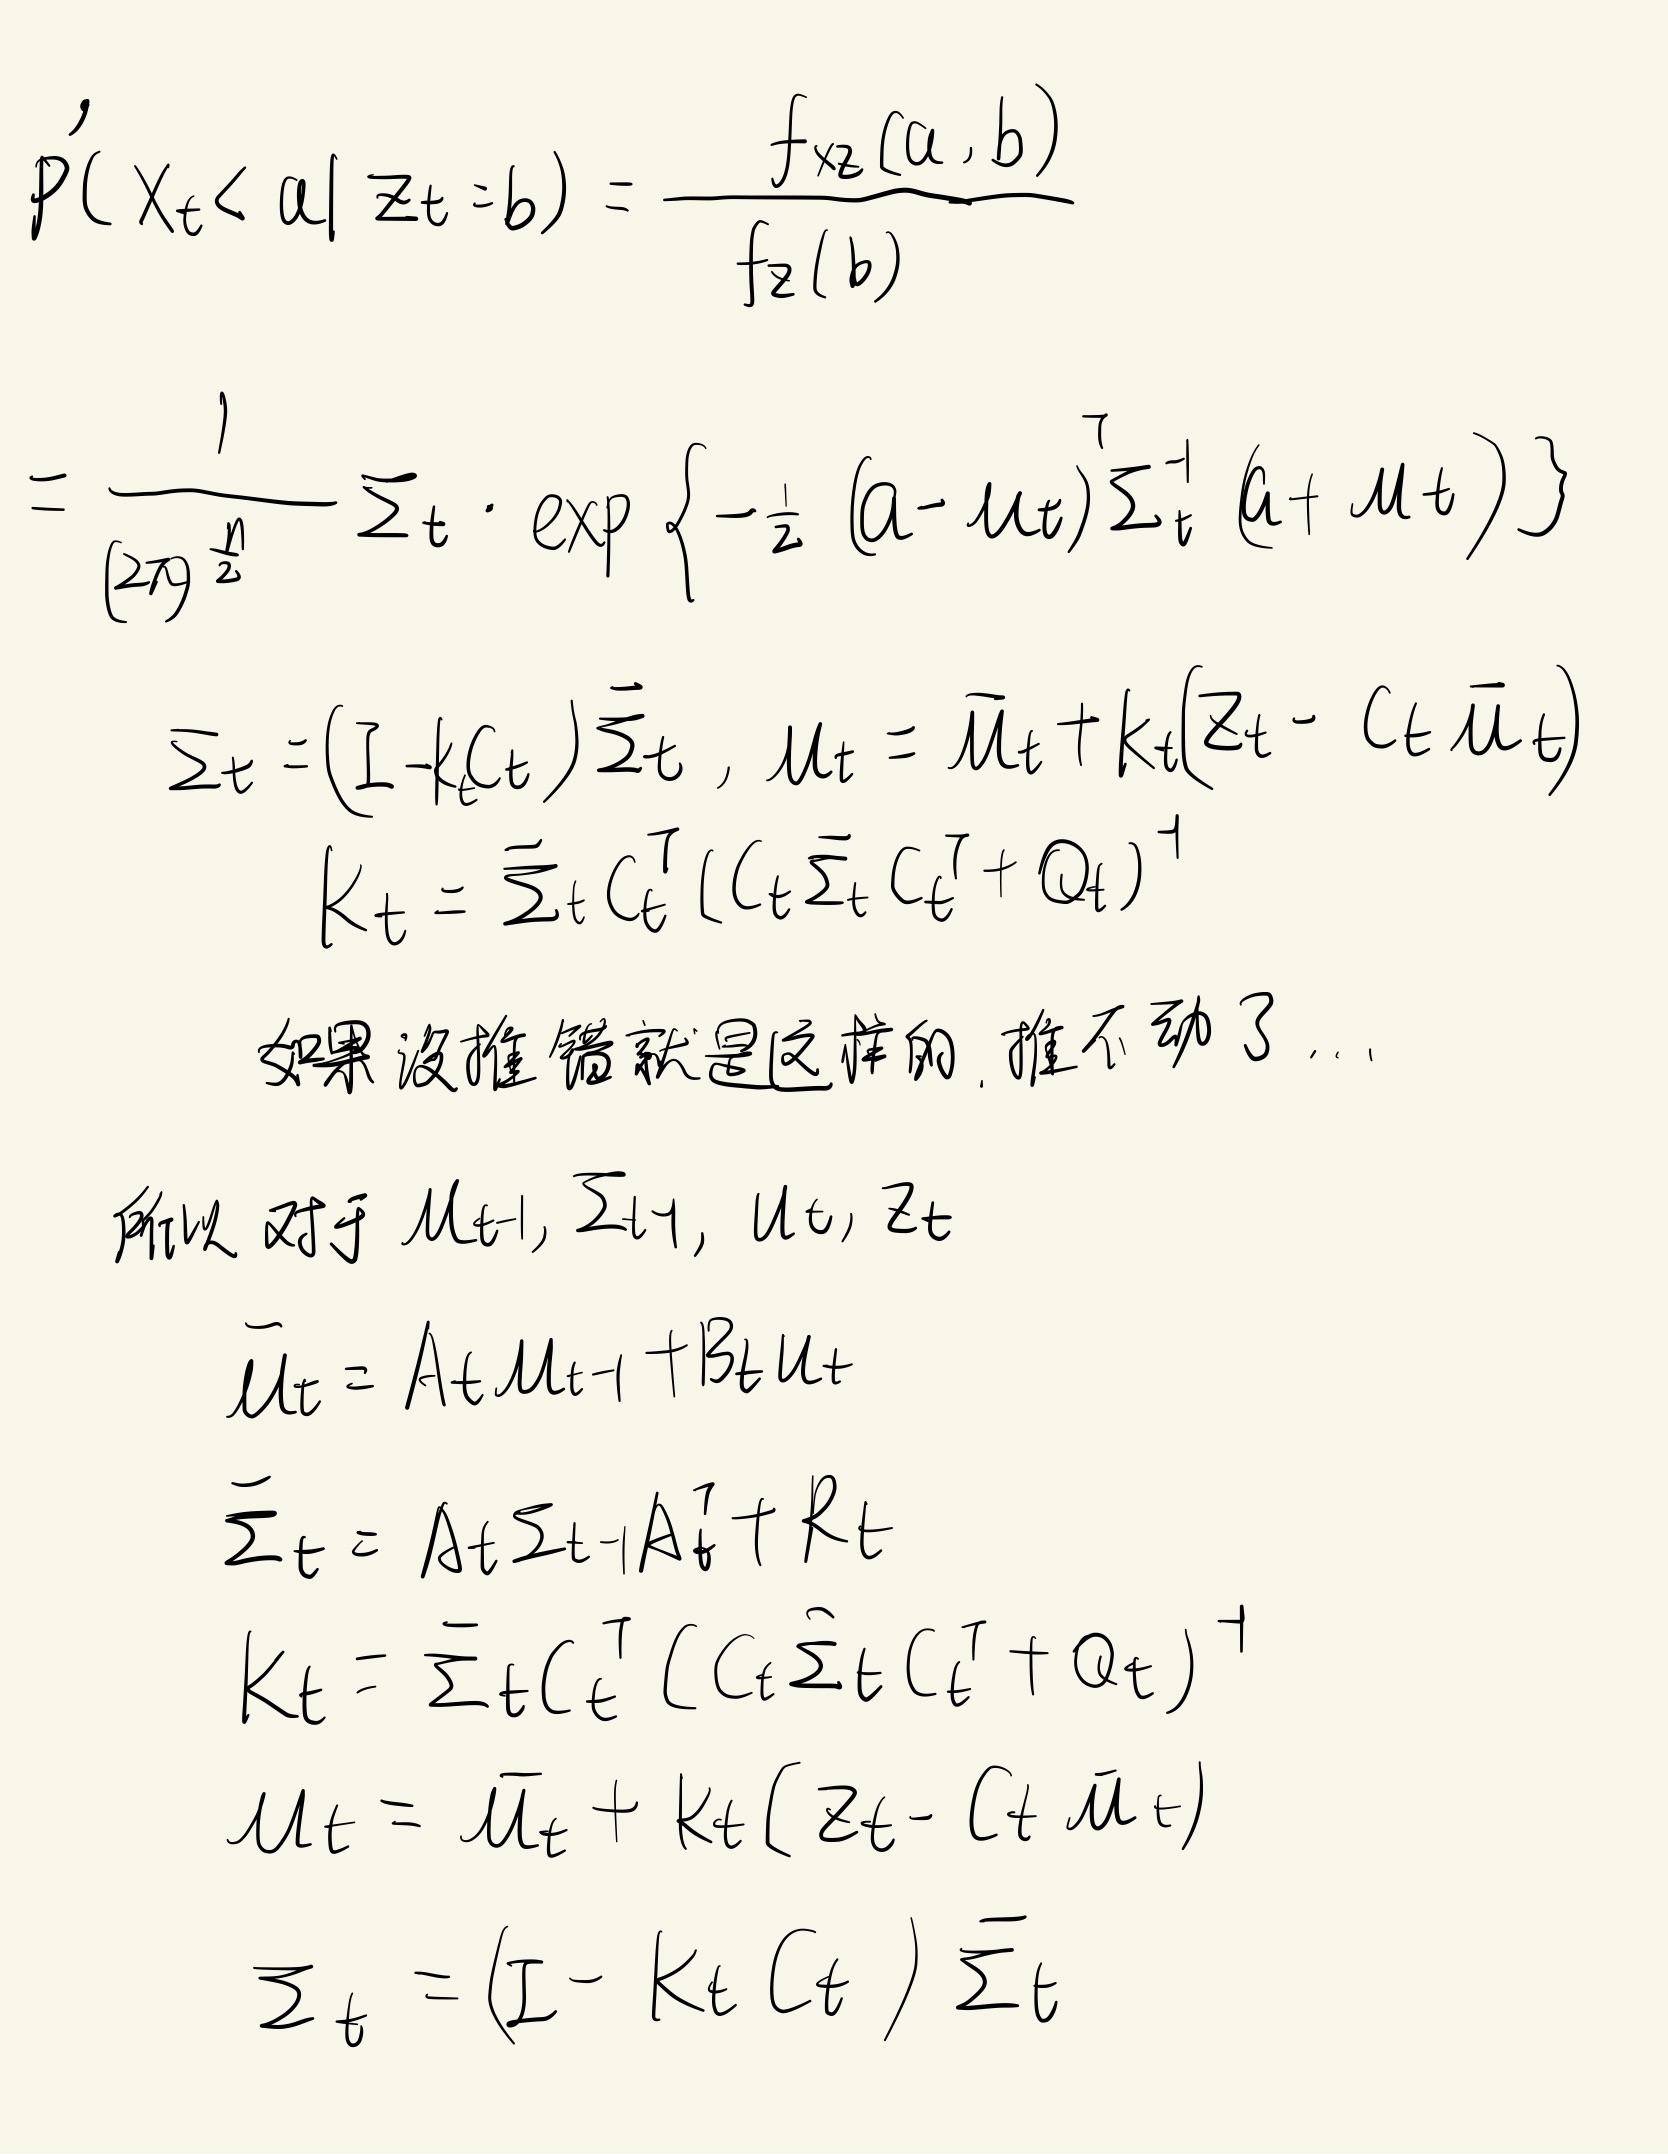 P'(x_t < a | z_t = b) = \frac{f_{xz}(a, b)}{f_z(b)}
= \frac{1}{(2π)^{\frac{n}{2}}} Σ_t · exp{ -\frac{1}{2} (a - μ_t)^T Σ_t^{-1} (a + μ_t) }
Σ_t = (I - k_t C_t) \bar{Σ}_t , μ_t = \bar{μ}_t + k_t(z_t - C_t \bar{μ}_t)
K_t = \bar{Σ}_t C_t^T (C_t \bar{Σ}_t C_t^T + Q_t)^{-1}
如果没推错就是这样的, 推不动了...
所以 对于 μ_{t-1}, Σ_{t-1}, u_t, z_t
\bar{μ}_t = A_t μ_{t-1} + B_t u_t
\bar{Σ}_t = A_t Σ_{t-1} A_t^T + R_t
K_t = \bar{Σ}_t C_t^T (C_t \bar{Σ}_t C_t^T + Q_t)^{-1}
μ_t = \bar{μ}_t + k_t(z_t - C_t \bar{μ}_t)
Σ_t = (I - K_t C_t) \bar{Σ}_t